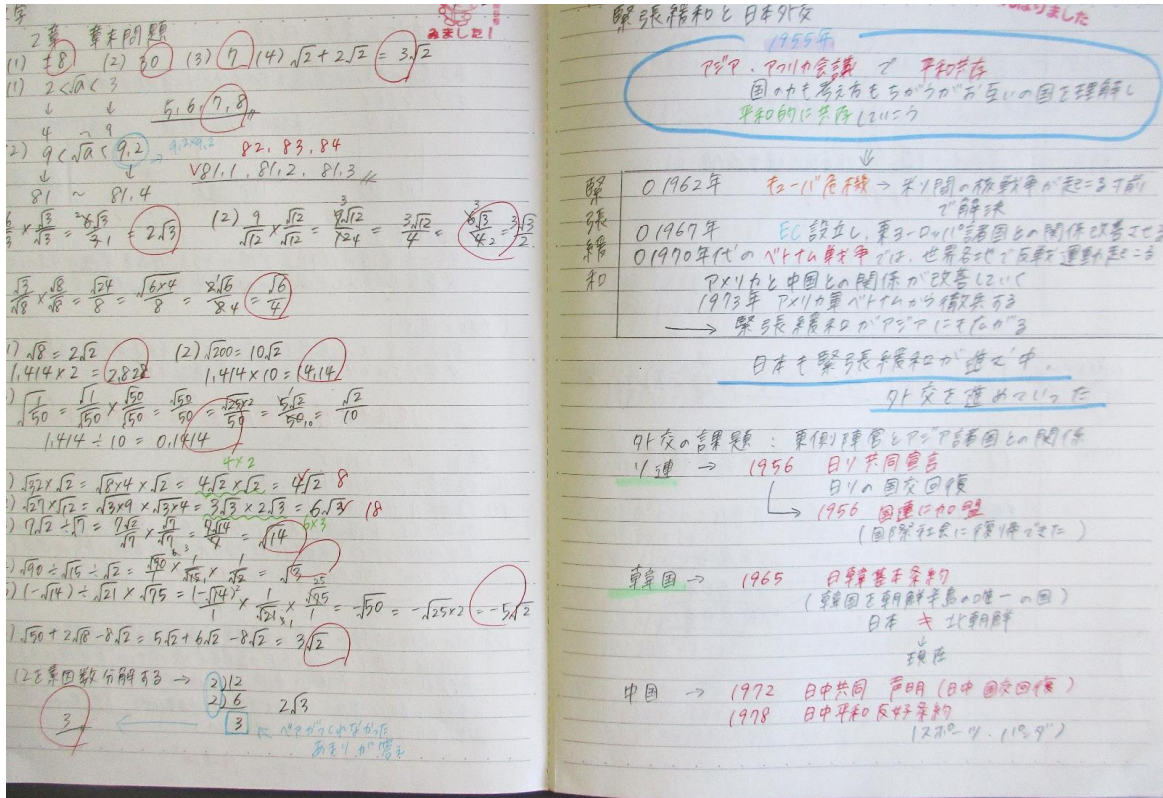 2章 章末問題
みました!
(1) ±8 (2) 30 (3) 7 (4) √2+2√2 = 3√2
(1) 2<√a<3
↓ ↓ 5,6,7,8
4 ~ 9
(2) 9<√a<9.2 9.2×9.2 82, 83, 84
↓ ↓ √81.1, 81.2, 81.3
81 ~ 81.4
× √3/√3 = 6√3/3 = 2√3 (2) 9/√12 × √12/√12 = 9√12/12 = 3√12/4 = 6√3/4 = 3√3/2
√3/√8 × √8/√8 = √24/8 = √6×4/8 = 2√6/8 = √6/4
√8=2√2 (2) √200=10√2
1.414×2 = 2.828 1.414×10 = 14.14
√1/50 = √1/√50 × √50/√50 = √50/50 = √25×2/50 = 5√2/50 = √2/10
1.414÷10 = 0.1414
4×2
√32×√2 = √8×4×√2 = 4√2×√2 = 4√2 8
√27×√12 = √3×9×√3×4 = 3√3×2√3 = 6√3 18
6×3
7√2÷√7 = 7√2/√7 × √7/√7 = 7√14/7 = √14
√90÷√15÷√2 = √90/1 × 1/√15 × 1/√2 = √3
(-√14)÷√21×√75 = (-√14)/1 × 1/√21 × √75/1 = -√50 = -√25×2 = -5√2
√50+2√18-8√2 = 5√2+6√2-8√2 = 3√2
12を素因数分解する → 2)12
2)6 2√3
3
3 ← ペアがつくれなかった
あまりが答え
緊張緩和と日本外交
りました
1955年
アジア・アフリカ会議 で 平和共存
国の力も考え方もちがうがお互いの国を理解し
平和的に共存していこう
↓
緊張緩和
○1962年 キューバ危機→米ソ間の核戦争が起こる寸前
で解決
○1967年 EC設立し、東ヨーロッパ諸国との関係改善させる
○1970年代のベトナム戦争では、世界各地で反戦運動起こる
アメリカと中国との関係が改善していく
1973年 アメリカ軍ベトナムから撤兵する
→ 緊張緩和がアジアにもながる
日本も緊張緩和が進む中、
外交を進めていった
外交の課題:東側陣営とアジア諸国との関係
ソ連 → 1956 日ソ共同宣言
日ソの国交回復
→ 1956 国連に加盟
(国際社会に復帰できた)
韓国 → 1965 日韓基本条約
(韓国を朝鮮半島の唯一の国)
日本 北朝鮮
↓
現在
中国 → 1972 日中共同 声明(日中 国交回復)
1978 日中平和友好条約
(スポーツ・パンダ)